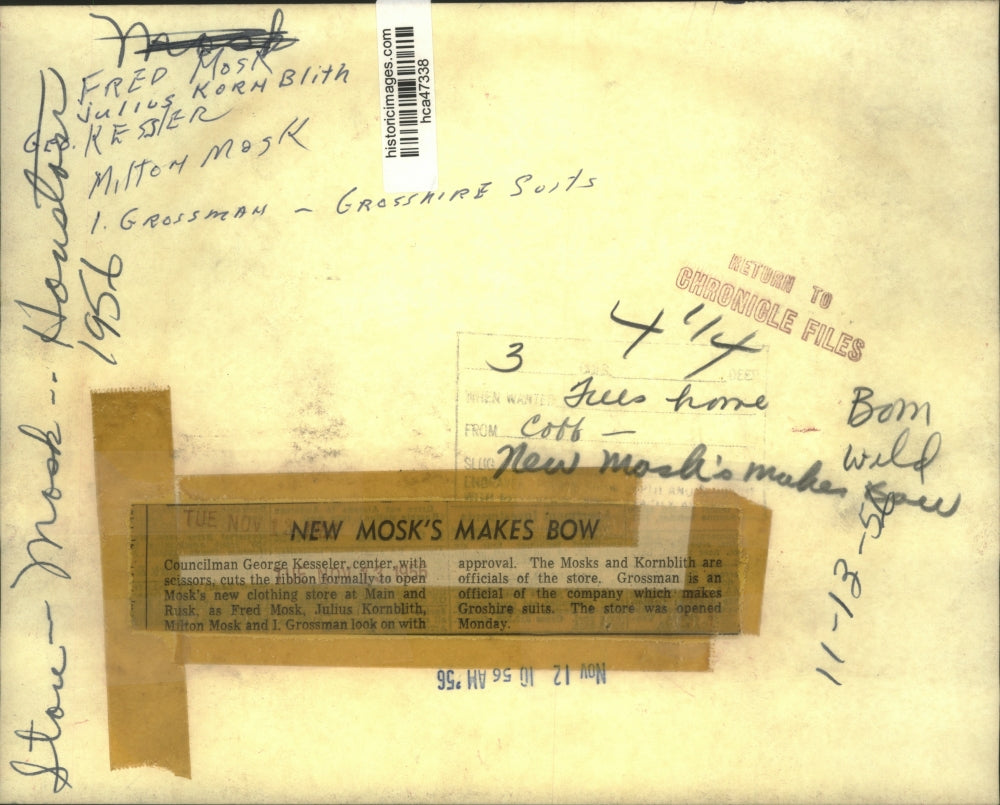 Mosk
FRED MOSK
Julius KORNBlith
GEO. KESSLER
Milton Mosk
I. GROSSMAN - GROSSHIRE Suits
Store - Mosk -- Houston
1956
historicimages.com
hca47338
RETURN TO
CHRONICLE FILES
4 1/4
3
WHEN WANTED Tues home
FROM Cobb -
SLUG New Mosk's makes bow
Bom
Wild
11-13-56
TUE NOV 13
NEW MOSK'S MAKES BOW
Councilman George Kesseler, center, with
scissors, cuts the ribbon formally to open
Mosk's new clothing store at Main and
Rusk, as Fred Mosk, Julius Kornblith,
Milton Mosk and I. Grossman look on with
approval. The Mosks and Kornblith are
officials of the store. Grossman is an
official of the company which makes
Groshire suits. The store was opened
Monday.
NOV 12 10 56 AM '56